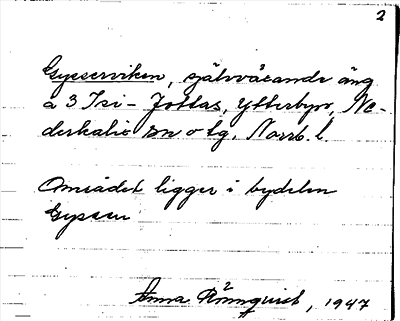 2
Gysserviken, självväxande äng
å 3 Isi-Jottas, Ytterbyn, Ne-
derkalix sn o tg, Norrb. l.
Området ligger i bydelen
Gyssen
Anna Rönnqvist, 1947